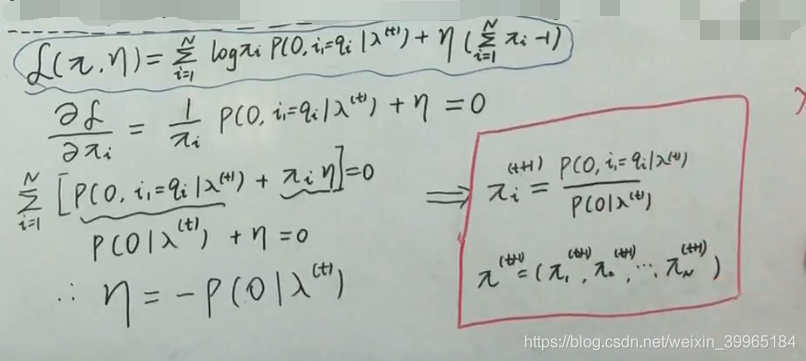 ℒ(π,η) = Σ_{i=1}^{N} log πi P(O, i₁=qi | λ^(t)) + η (Σ_{i=1}^{N} πi -1)
∂ℒ/∂πi = 1/πi P(O, i₁=qi | λ^(t)) + η = 0
Σ_{i=1}^{N} [P(O, i₁=qi | λ^(t)) + πi η] = 0
P(O | λ^(t)) + η = 0
∴ η = -P(O | λ^(t))
⇒ πi^(t+1) = P(O, i₁=qi | λ^(t)) / P(O | λ^(t))
π^(t+1) = (π₁^(t+1), π₂^(t+1), ⋯, π_N^(t+1))
https://blog.csdn.net/weixin_39965184